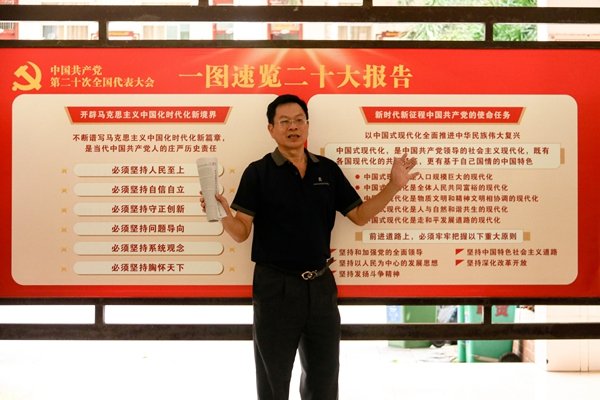 中国共产党
第二十次全国代表大会
一图速览二十大报告
开辟马克思主义中国化时代化新境界
不断谱写马克思主义中国化时代化新篇章，
是当代中国共产党人的庄严历史责任
必须坚持人民至上
必须坚持自信自立
必须坚持守正创新
必须坚持问题导向
必须坚持系统观念
必须坚持胸怀天下
新时代新征程中国共产党的使命任务
以中国式现代化全面推进中华民族伟大复兴
中国式现代化，是中国共产党领导的社会主义现代化，既有
各国现代化的共 ，更有基于自己国情的中国特色
中国式 人口规模巨大的现代化
中国式 是全体人民共同富裕的现代化
中国式 化是物质文明和精神文明相协调的现代化
中国式 化是人与自然和谐共生的现代化
中国式现代化是走和平发展道路的现代化
前进道路上，必须牢牢把握以下重大原则
坚持和加强党的全面领导
坚持中国特色社会主义道路
坚持以人民为中心的发展思想
坚持深化改革开放
坚持发扬斗争精神